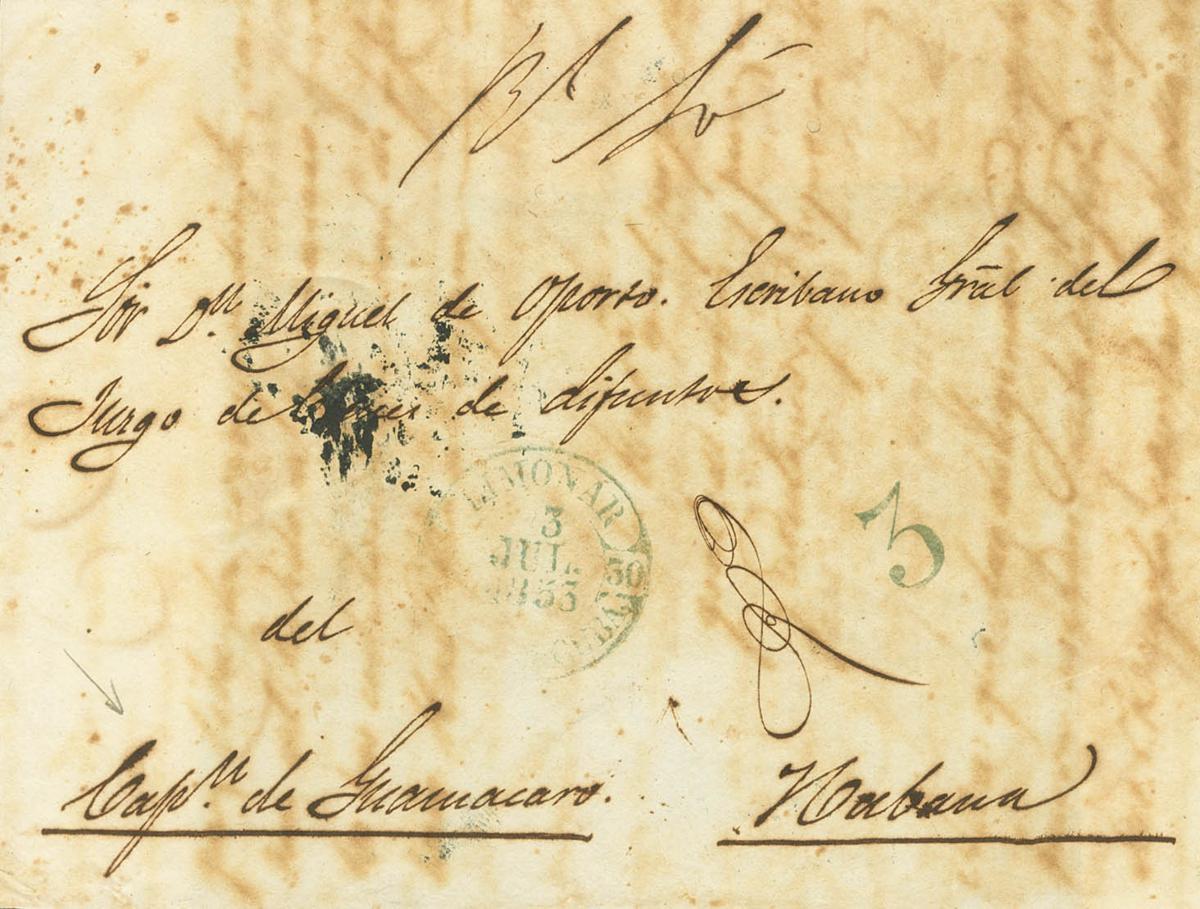 Rl. So
Sor Dn. Miguel de Oporto. Escribano Gral del
Juzgo de Bienes de difuntos.
LIMONAR
3
JUL.
1853
30
CUBA
3
del
Capn. de Guamacaro.
Habana